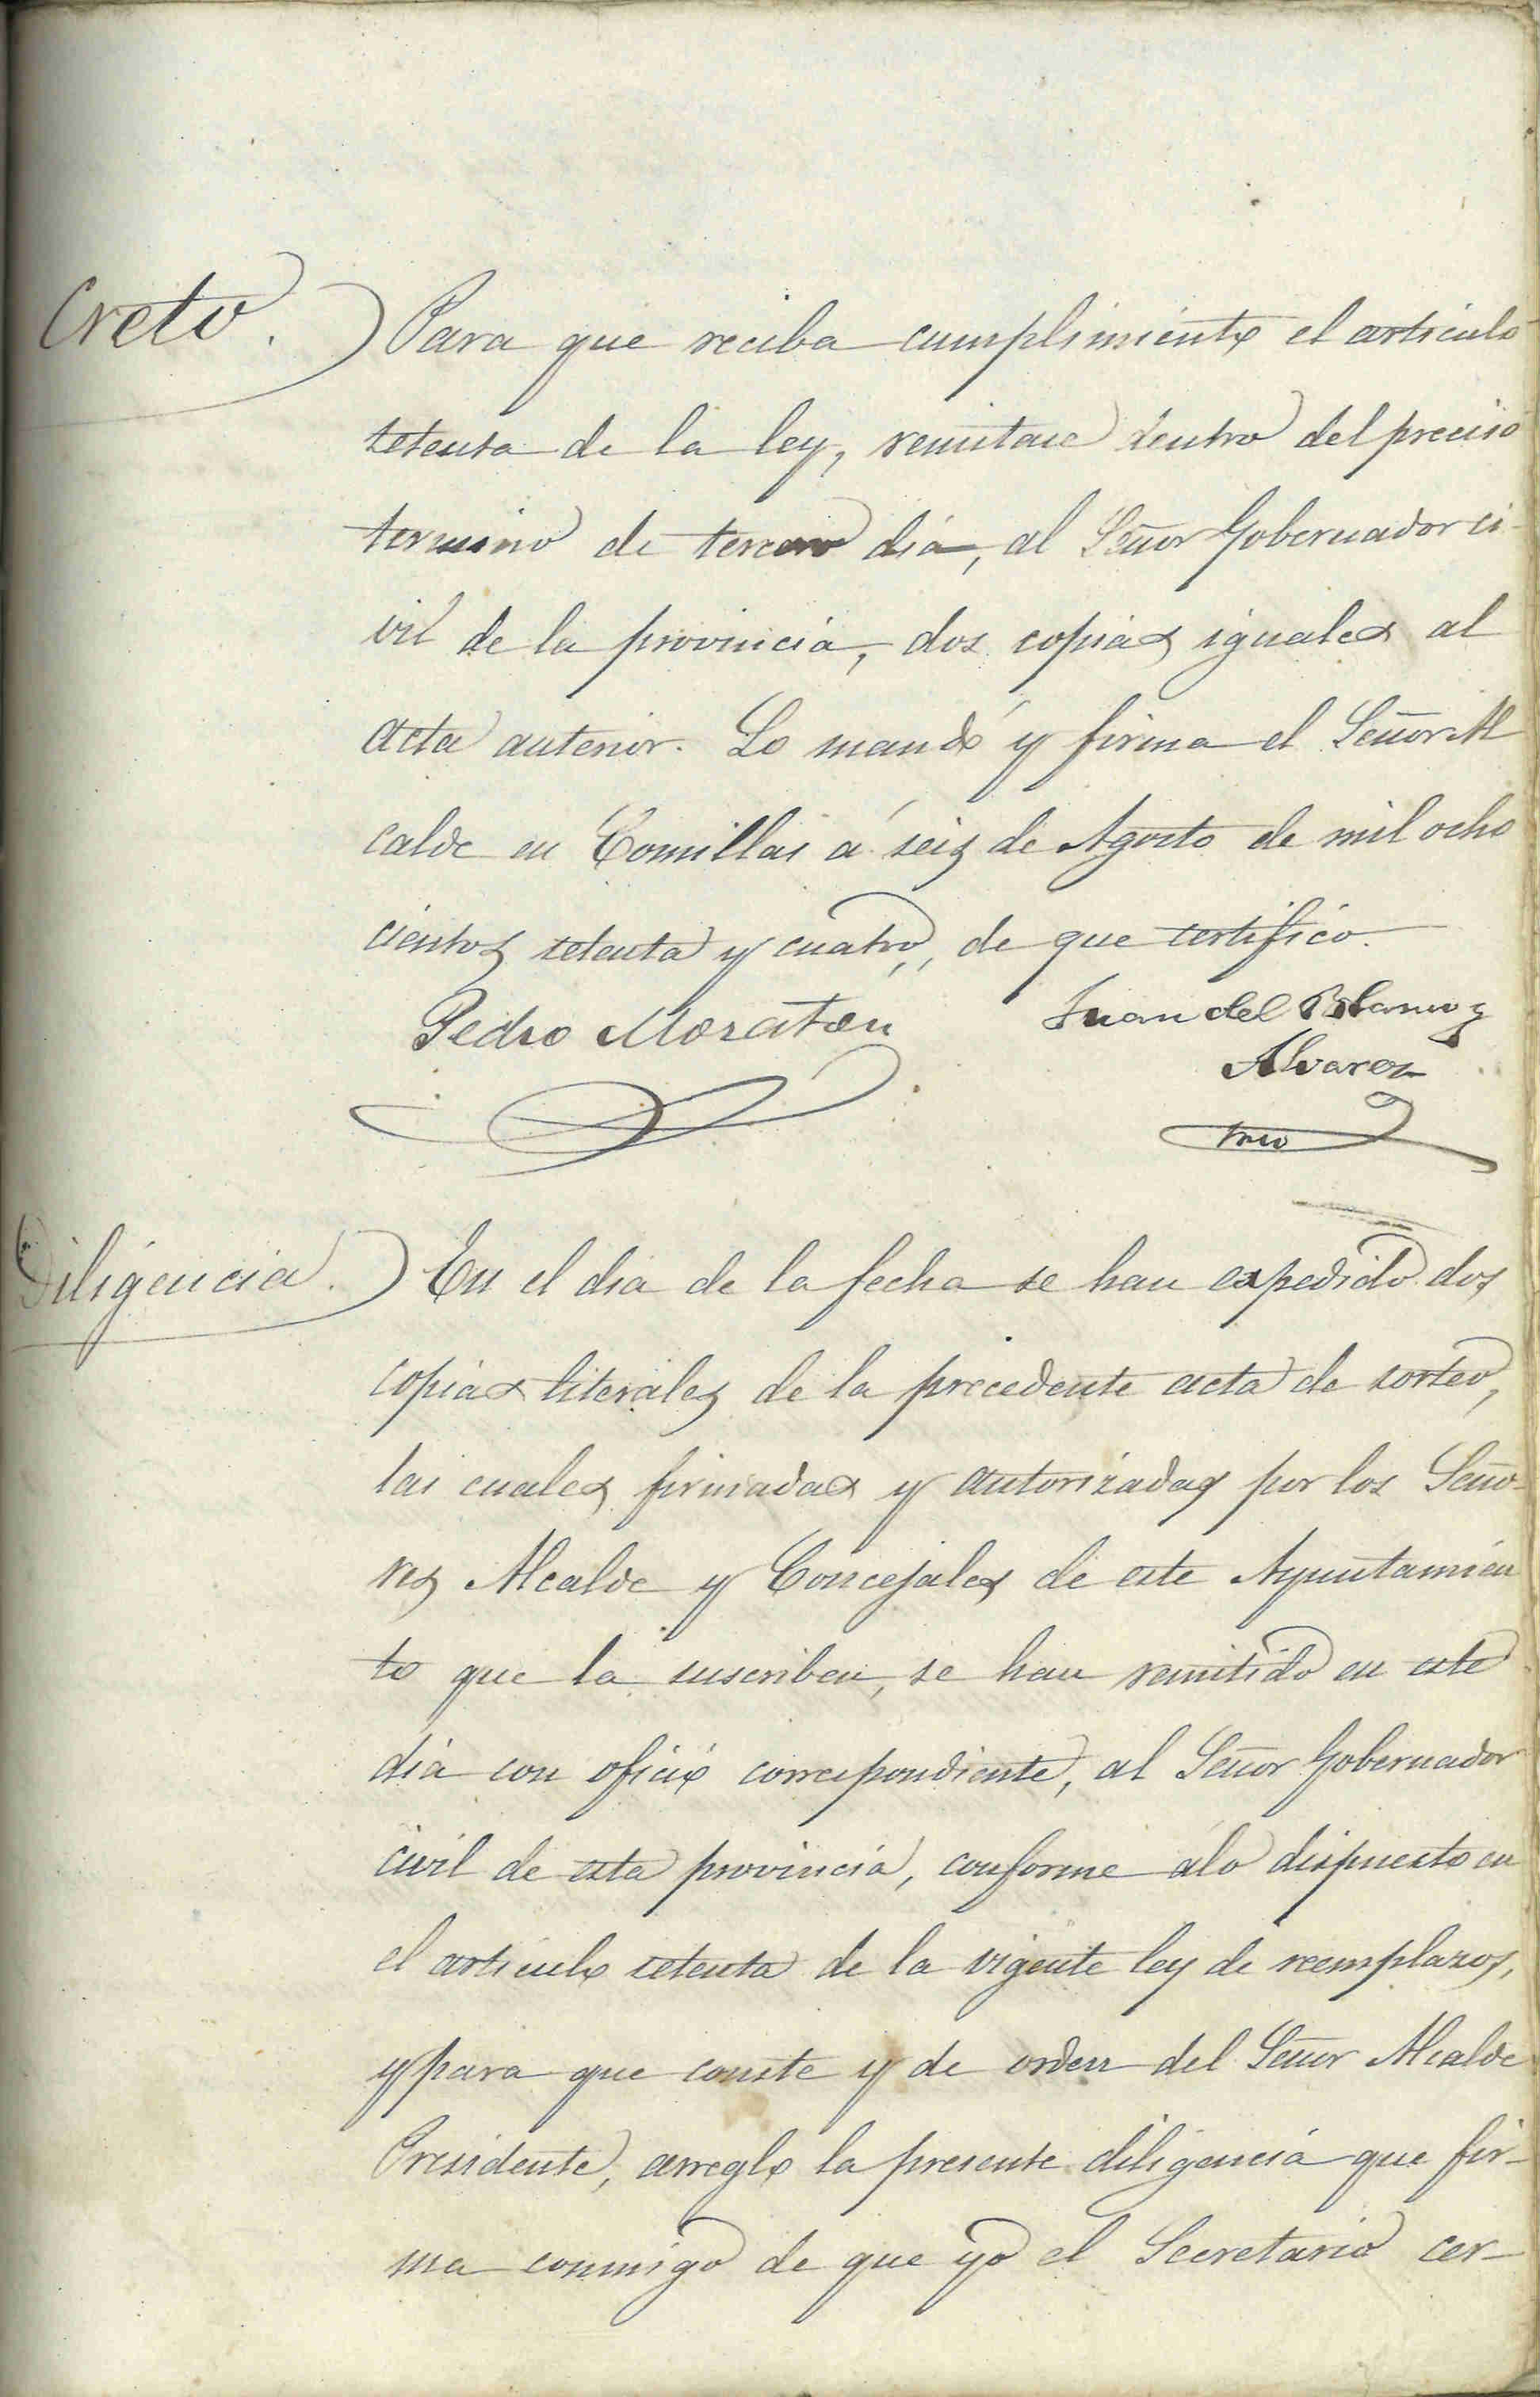 creto. Para que reciba cumplimiento el articulo
setenta de la ley, remitase dentro del preciso
termino de tercero dia, al Señor Gobernador ci-
vil de la provincia, dos copias iguales al
acta anterior. Lo mandó y firma el Señor Al
calde en Comillas á seis de Agosto de mil ocho
cientos setenta y cuatro, de que certifico.
Pedro Moratón Juan del
Alvarez
Srio
Diligencia. En el dia de la fecha se han expedido dos
copias literales de la precedente acta de sorteo,
las cuales firmadas y autorizadas por los Seño-
res Alcalde y Concejales de este Ayuntamien
to que la suscriben, se han remitido en este
dia con oficio correspondiente, al Señor Gobernador
civil de esta provincia, conforme álo dispuesto en
el articulo setenta de la vigente ley de reemplazos,
y para que conste y de orden del Señor Alcalde
Presidente, arreglo la presente diligencia que fir-
ma conmigo de que yo el Secretario cer-